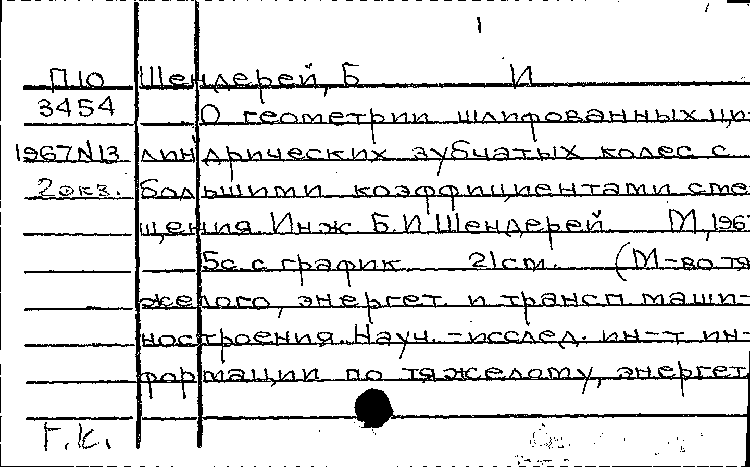 1
П10 Шендерей, Б И
3454 О геометрии шлифованных ци-
1967N13 линдрических зубчатых колес с
2 экз. большими коэффициентами сме-
щения. Инж Б.И Шендерей М, 196
5с. с график. 21 cm. (М-во тя
желого, энергет. и трансп маши-
ностроения. Науч.-исслед. ин-т ин-
формации по тяжелому, энергет
Г.К.